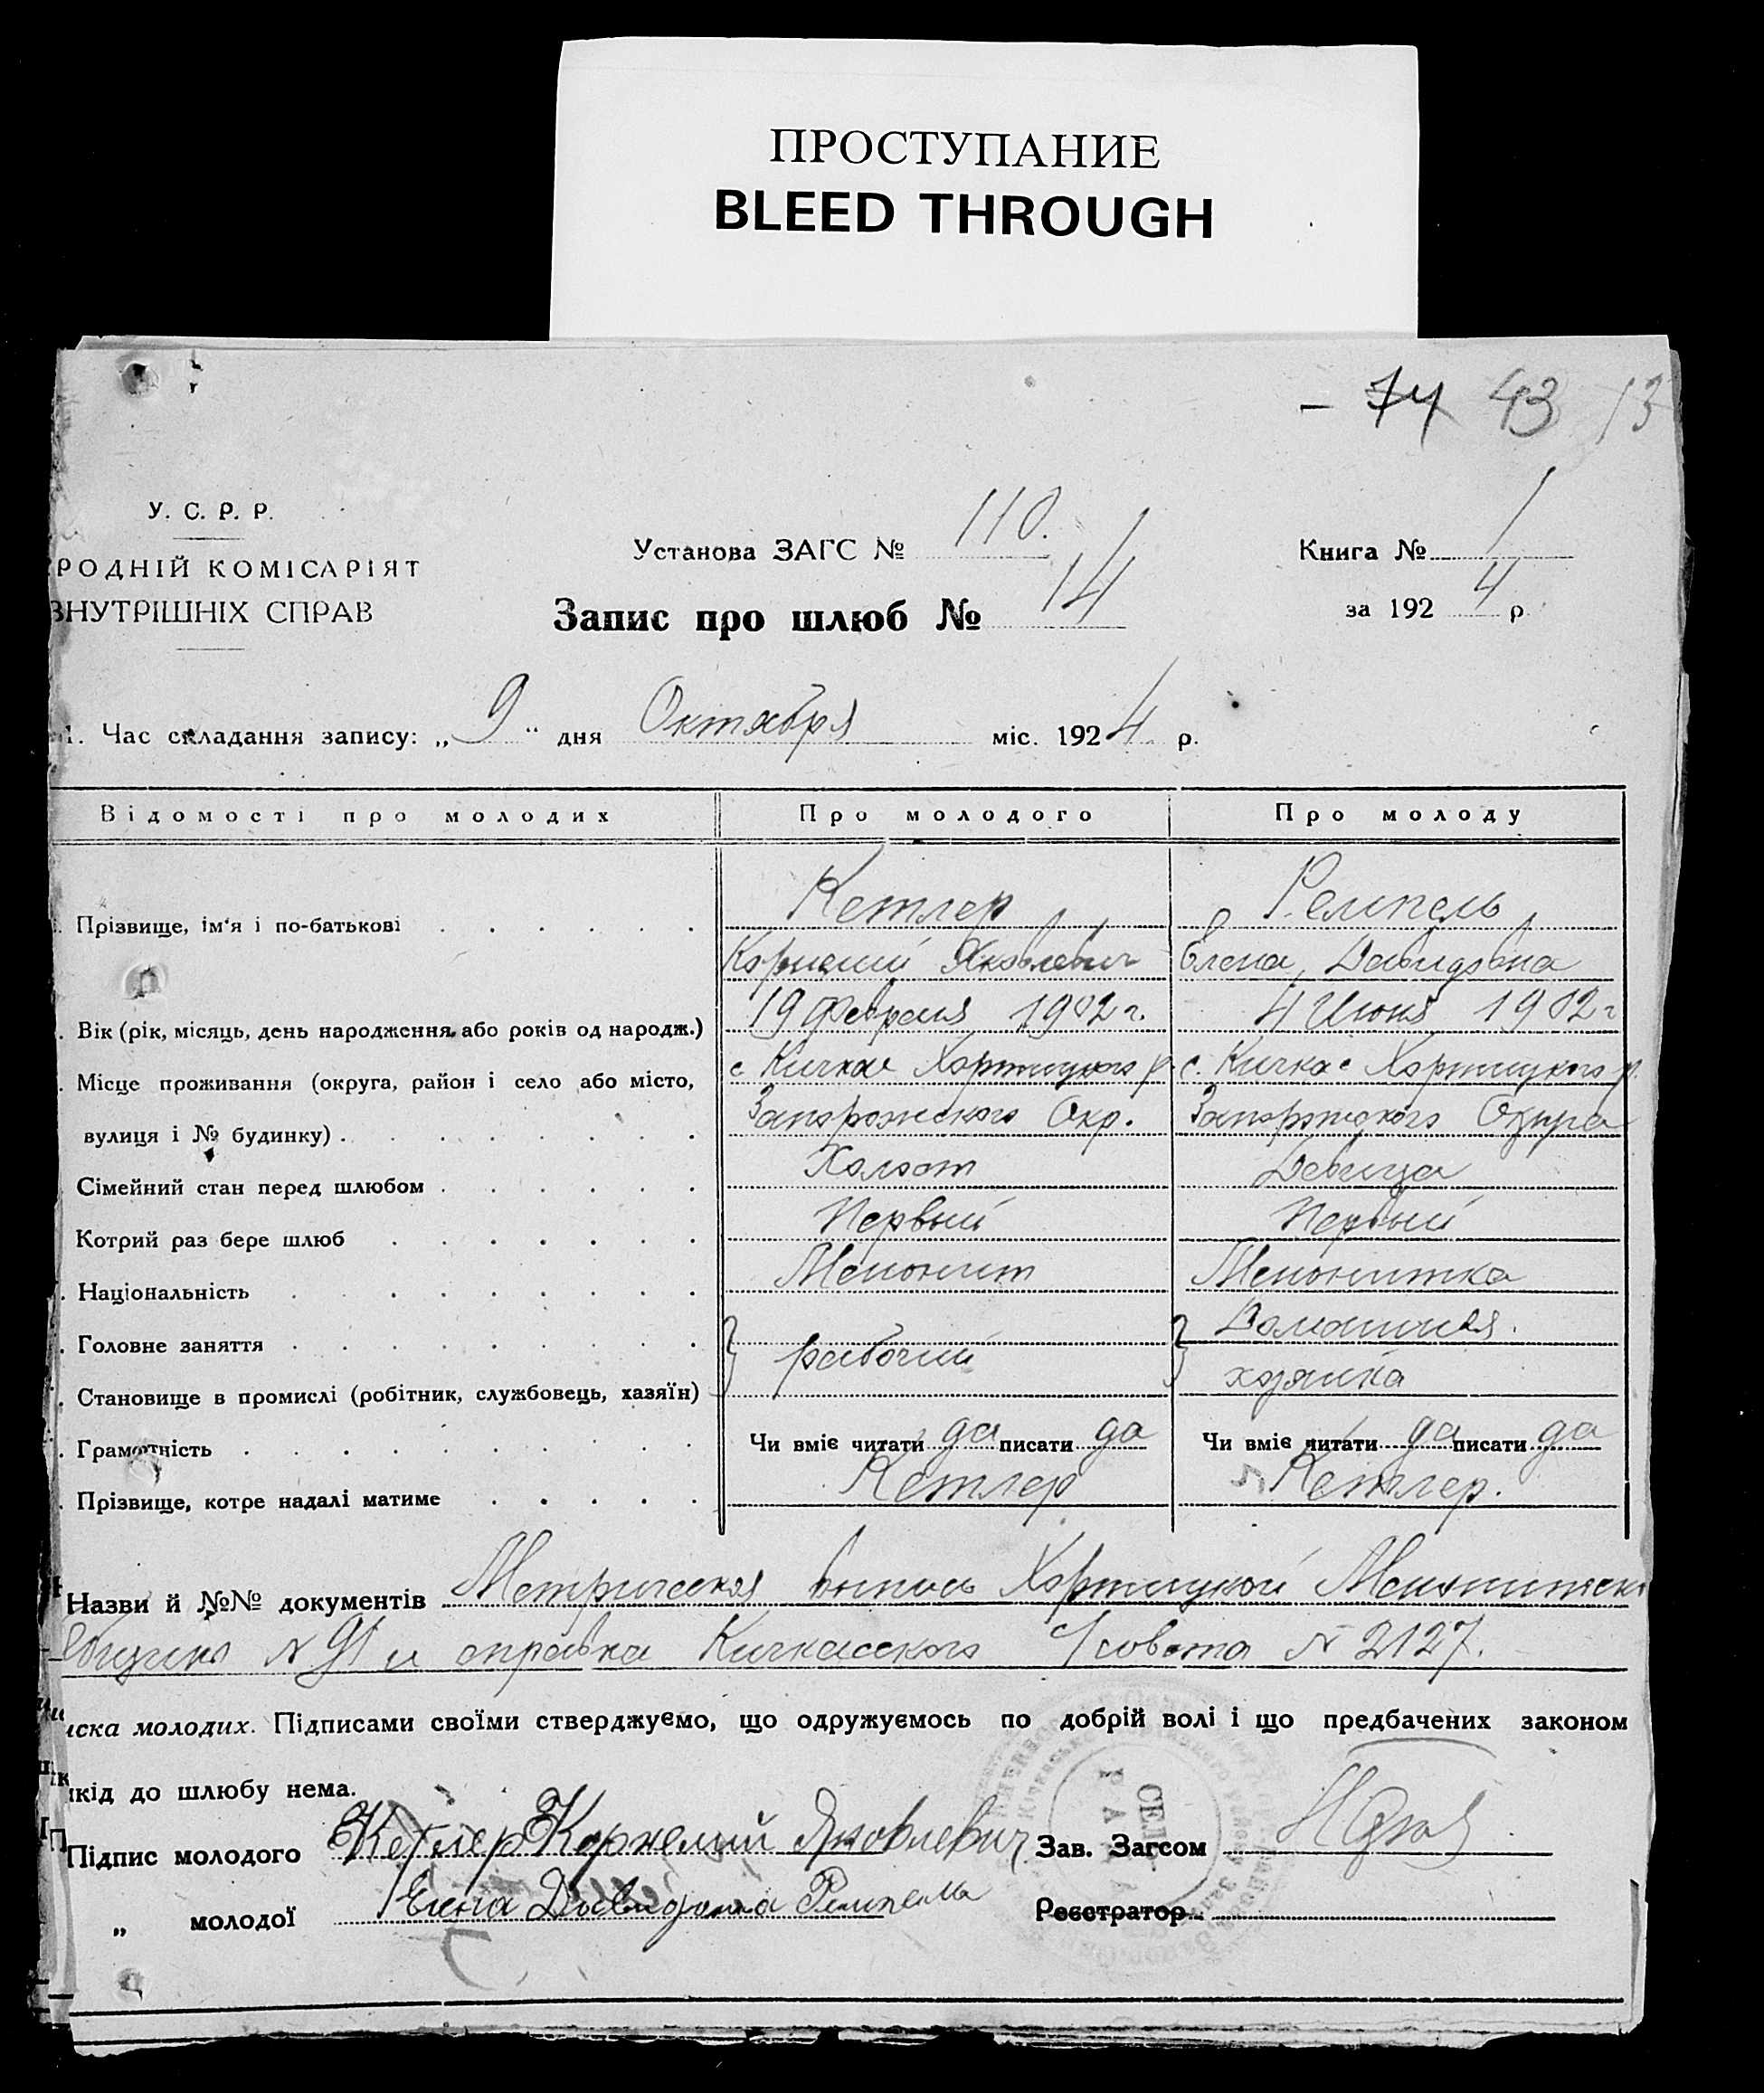 ПРОСТУПАНИЕ
BLEED THROUGH
– 74 43 13
У. С. Р. Р.
РОДНІЙ КОМІСАРІЯТ
ВНУТРІШНІХ СПРАВ
Установа ЗАГС № 110.
Запис про шлюб № 14
Книга № 1
за 1924 р
1. Час складання запису: „ 9 “ дня Октября міс. 1924 р.
Відомості про молодих Про молодого Про молоду
Прізвище, ім'я і по-батькові Кетлер Ремпель
Корнелий Яковлевич Елена Давидовна
Вік (рік, місяць, день народження або років од народж.) 19 Февраля 1902 г. 4 Июня 1902 г
Місце проживання (округа, район і село або місто, с Кичкас Хортицкого р. с. Кичкас Хортицкого р.
вулиця і № будинку) Запорожского Окр. Запорожского Округа
Сімейний стан перед шлюбом Холост Девица
Котрий раз бере шлюб Первый Первый
Національність Менонит Менонитка
Головне заняття рабочий Домашняя
Становище в промислі (робітник, службовець, хазяїн) хозяйка
Грамотність Чи вміє читати да писати да Чи вміє читати да писати да
Прізвище, котре надалі матиме Кетлер Кетлер.
Назви й №№ документів Метрическая выпись Хортицкой Менонитск
Общины № 91 и справка Кичкасского С/совета № 2127.
иска молодих. Підписами своїми стверджуємо, що одружуємось по добрій волі і що предбачених законом
шкід до шлюбу нема.
Підпис молодого Кетлер Корнелий Яковлевич Зав. Загсом
„ молодої Елена Давидовна Ремпель Реєстратор
СЕЛЬ
РАДА